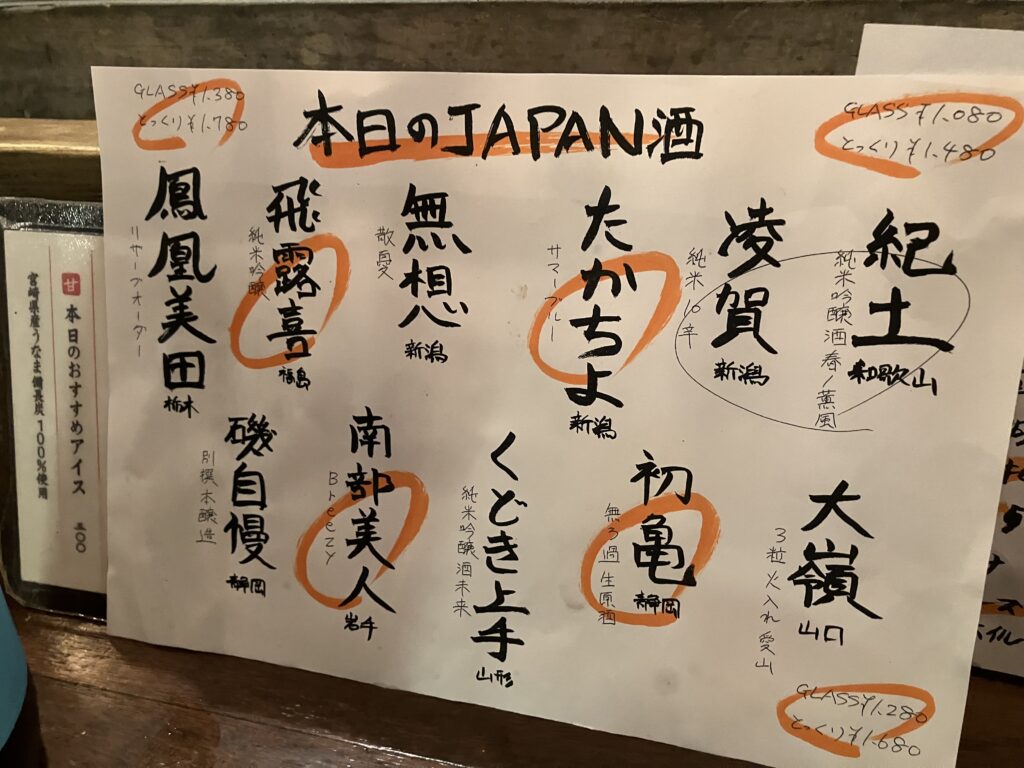 本日のJAPAN酒
GLASS ¥1.080
とっくり ¥1.480
紀土
純米吟醸酒 春ノ薫風
和歌山
凌賀
純米 10辛
新潟
たかちよ
サマーブルー
新潟
無想
散憂
新潟
飛露喜
純米吟醸
福島
GLASS ¥1.380
とっくり ¥1.780
鳳凰美田
リザーブオーダー
栃木
大嶺
3粒 火入れ 愛山
山口
GLASS ¥1.280
とっくり ¥1.680
初亀
無ろ過 生原酒
静岡
くどき上手
純米吟醸 酒未来
山形
南部美人
Breezy
岩手
磯自慢
別撰本醸造
静岡
甘 本日のおすすめアイス 五〇〇
宮崎県産うなま備長炭100%使用